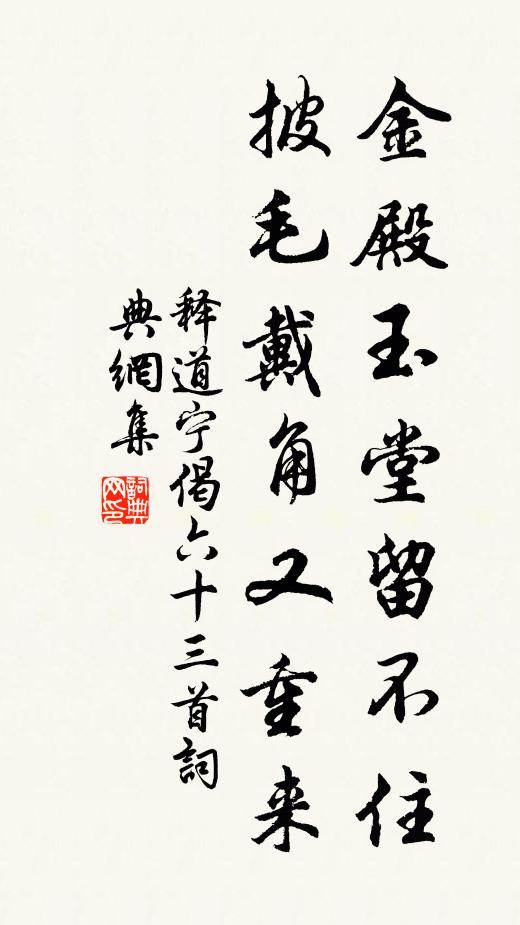 金殿玉堂留不住
披毛戴角又重来
释道宁偈六十三首詞
典網集
詞典网印